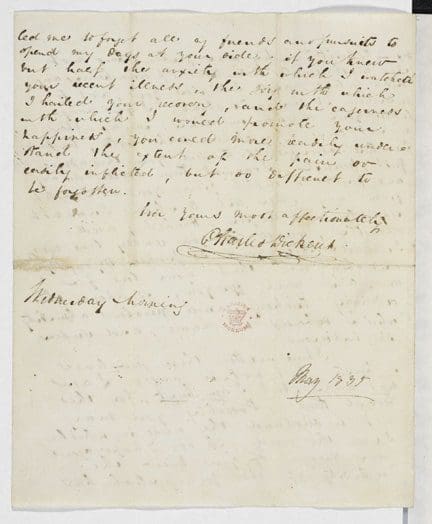 led me to forget all my friends and pursuits to
spend my days at your side; if you knew
but half the anxiety with which I watched
your recent illness, the joy with which
I hailed your recovery, and the eagerness
with which I would promote your
happiness, you could more readily under-
stand the extent of the pain so
easily inflicted, but so difficult to
be forgotten.
Ever yours most affectionately
Charles Dickens
Wednesday Morning
May 1835